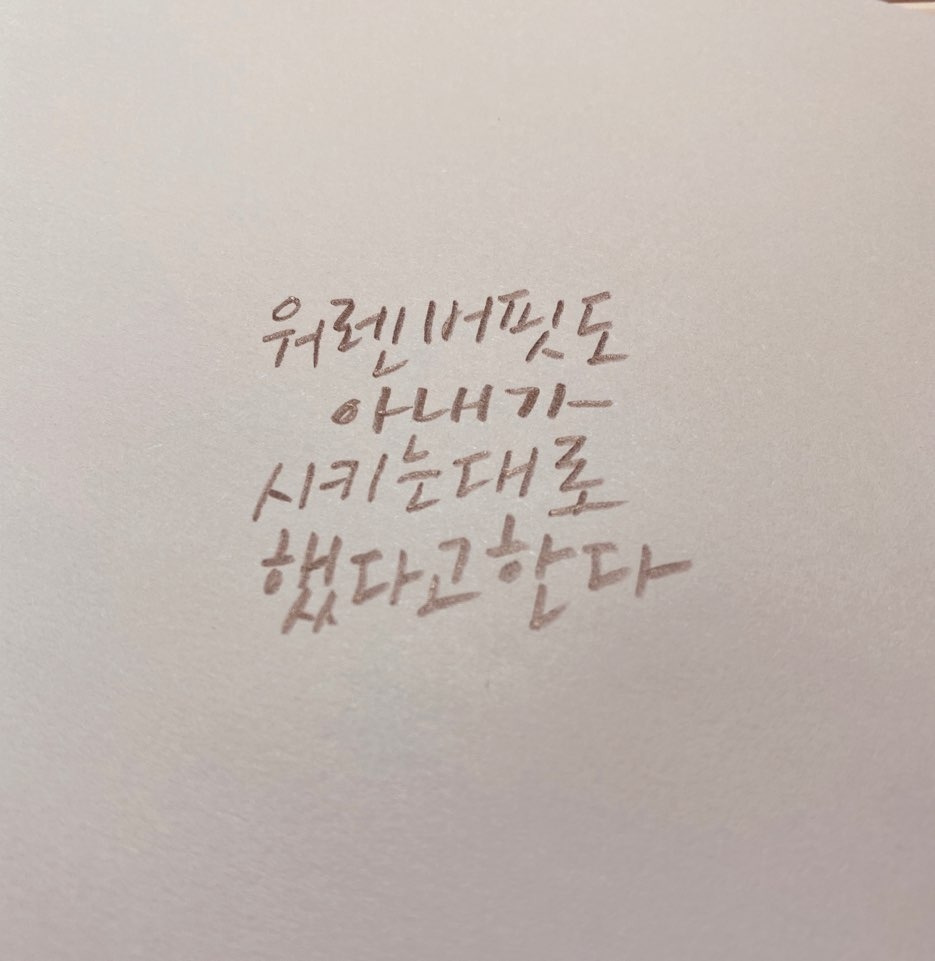 워렌버핏도
아내가
시키는대로
했다고한다